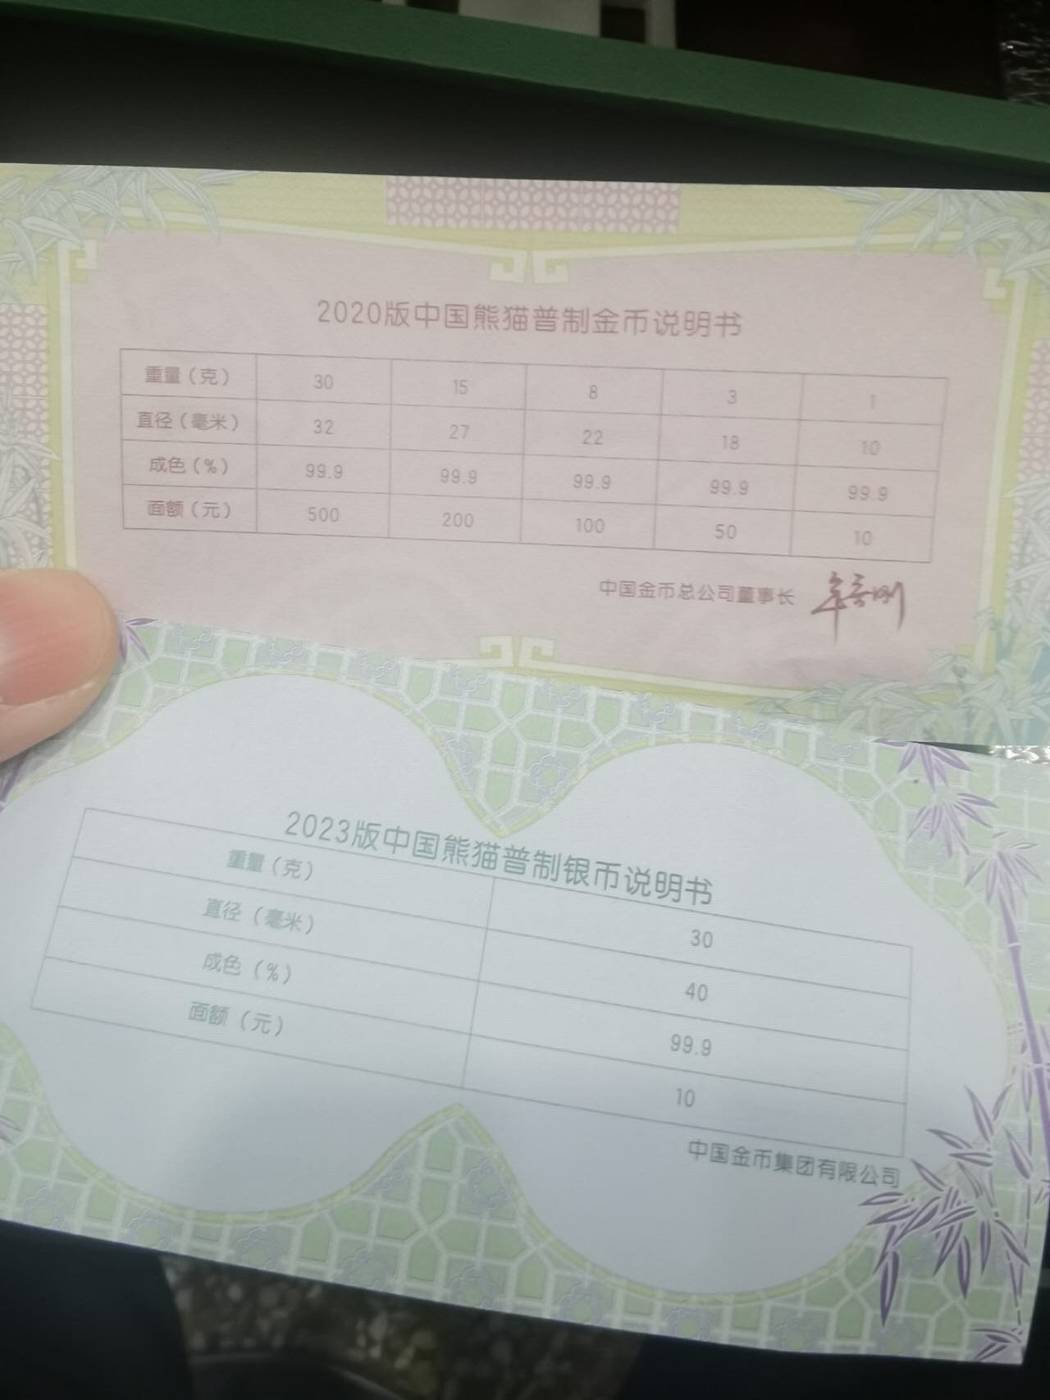 2020版中国熊猫普制金币说明书
重量（克） 30 15 8 3 1
直径（毫米） 32 27 22 18 10
成色（%） 99.9 99.9 99.9 99.9 99.9
面额（元） 500 200 100 50 10
中国金币总公司董事长
2023版中国熊猫普制银币说明书
重量（克） 30
直径（毫米） 40
成色（%） 99.9
面额（元） 10
中国金币集团有限公司